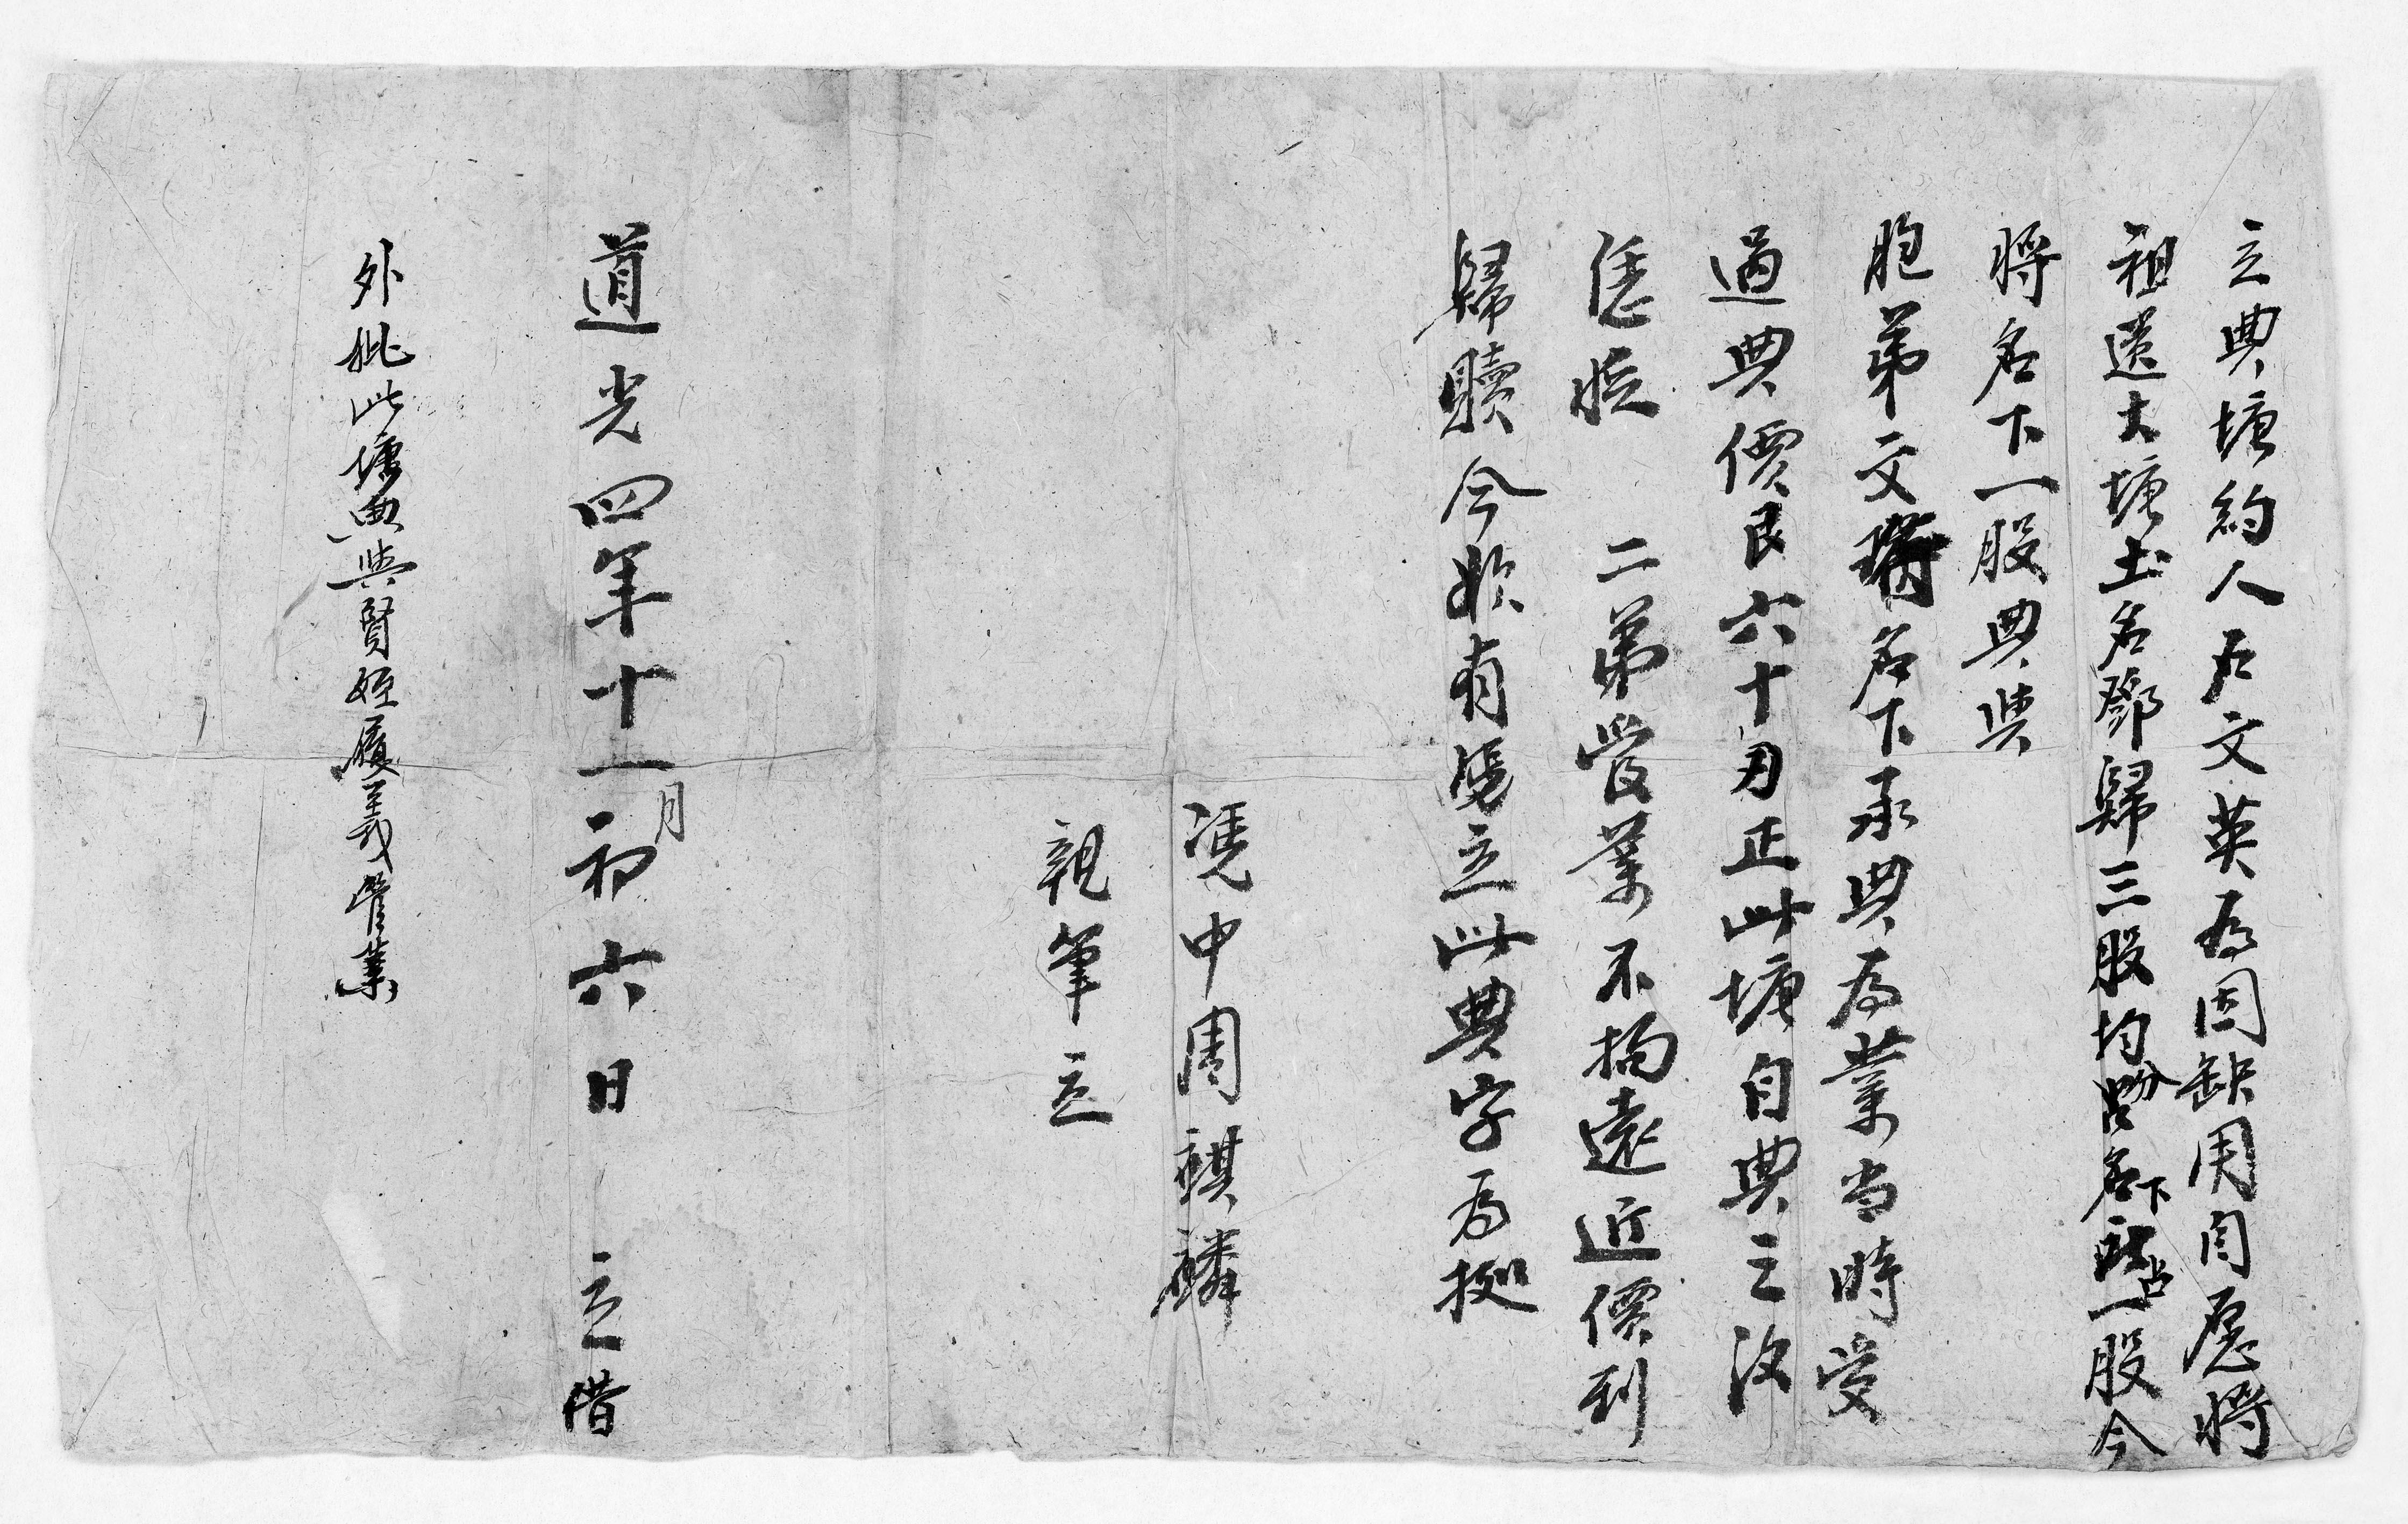 立典塘約人石文英为因缺用自愿將
祖遺大塘土名鄧歸三股均分名下占一股今
將名下一股典與
胞弟文瑞名下承典为業当時受
過典價艮六十刃正此塘自典之後
凭從 二弟管業不拘遠近價到
歸贖今欲有凭立此典字为拠
凭中周祺麟
親筆立
道光四年十一月初六日 立借
外批此塘典與賢姪履義管業